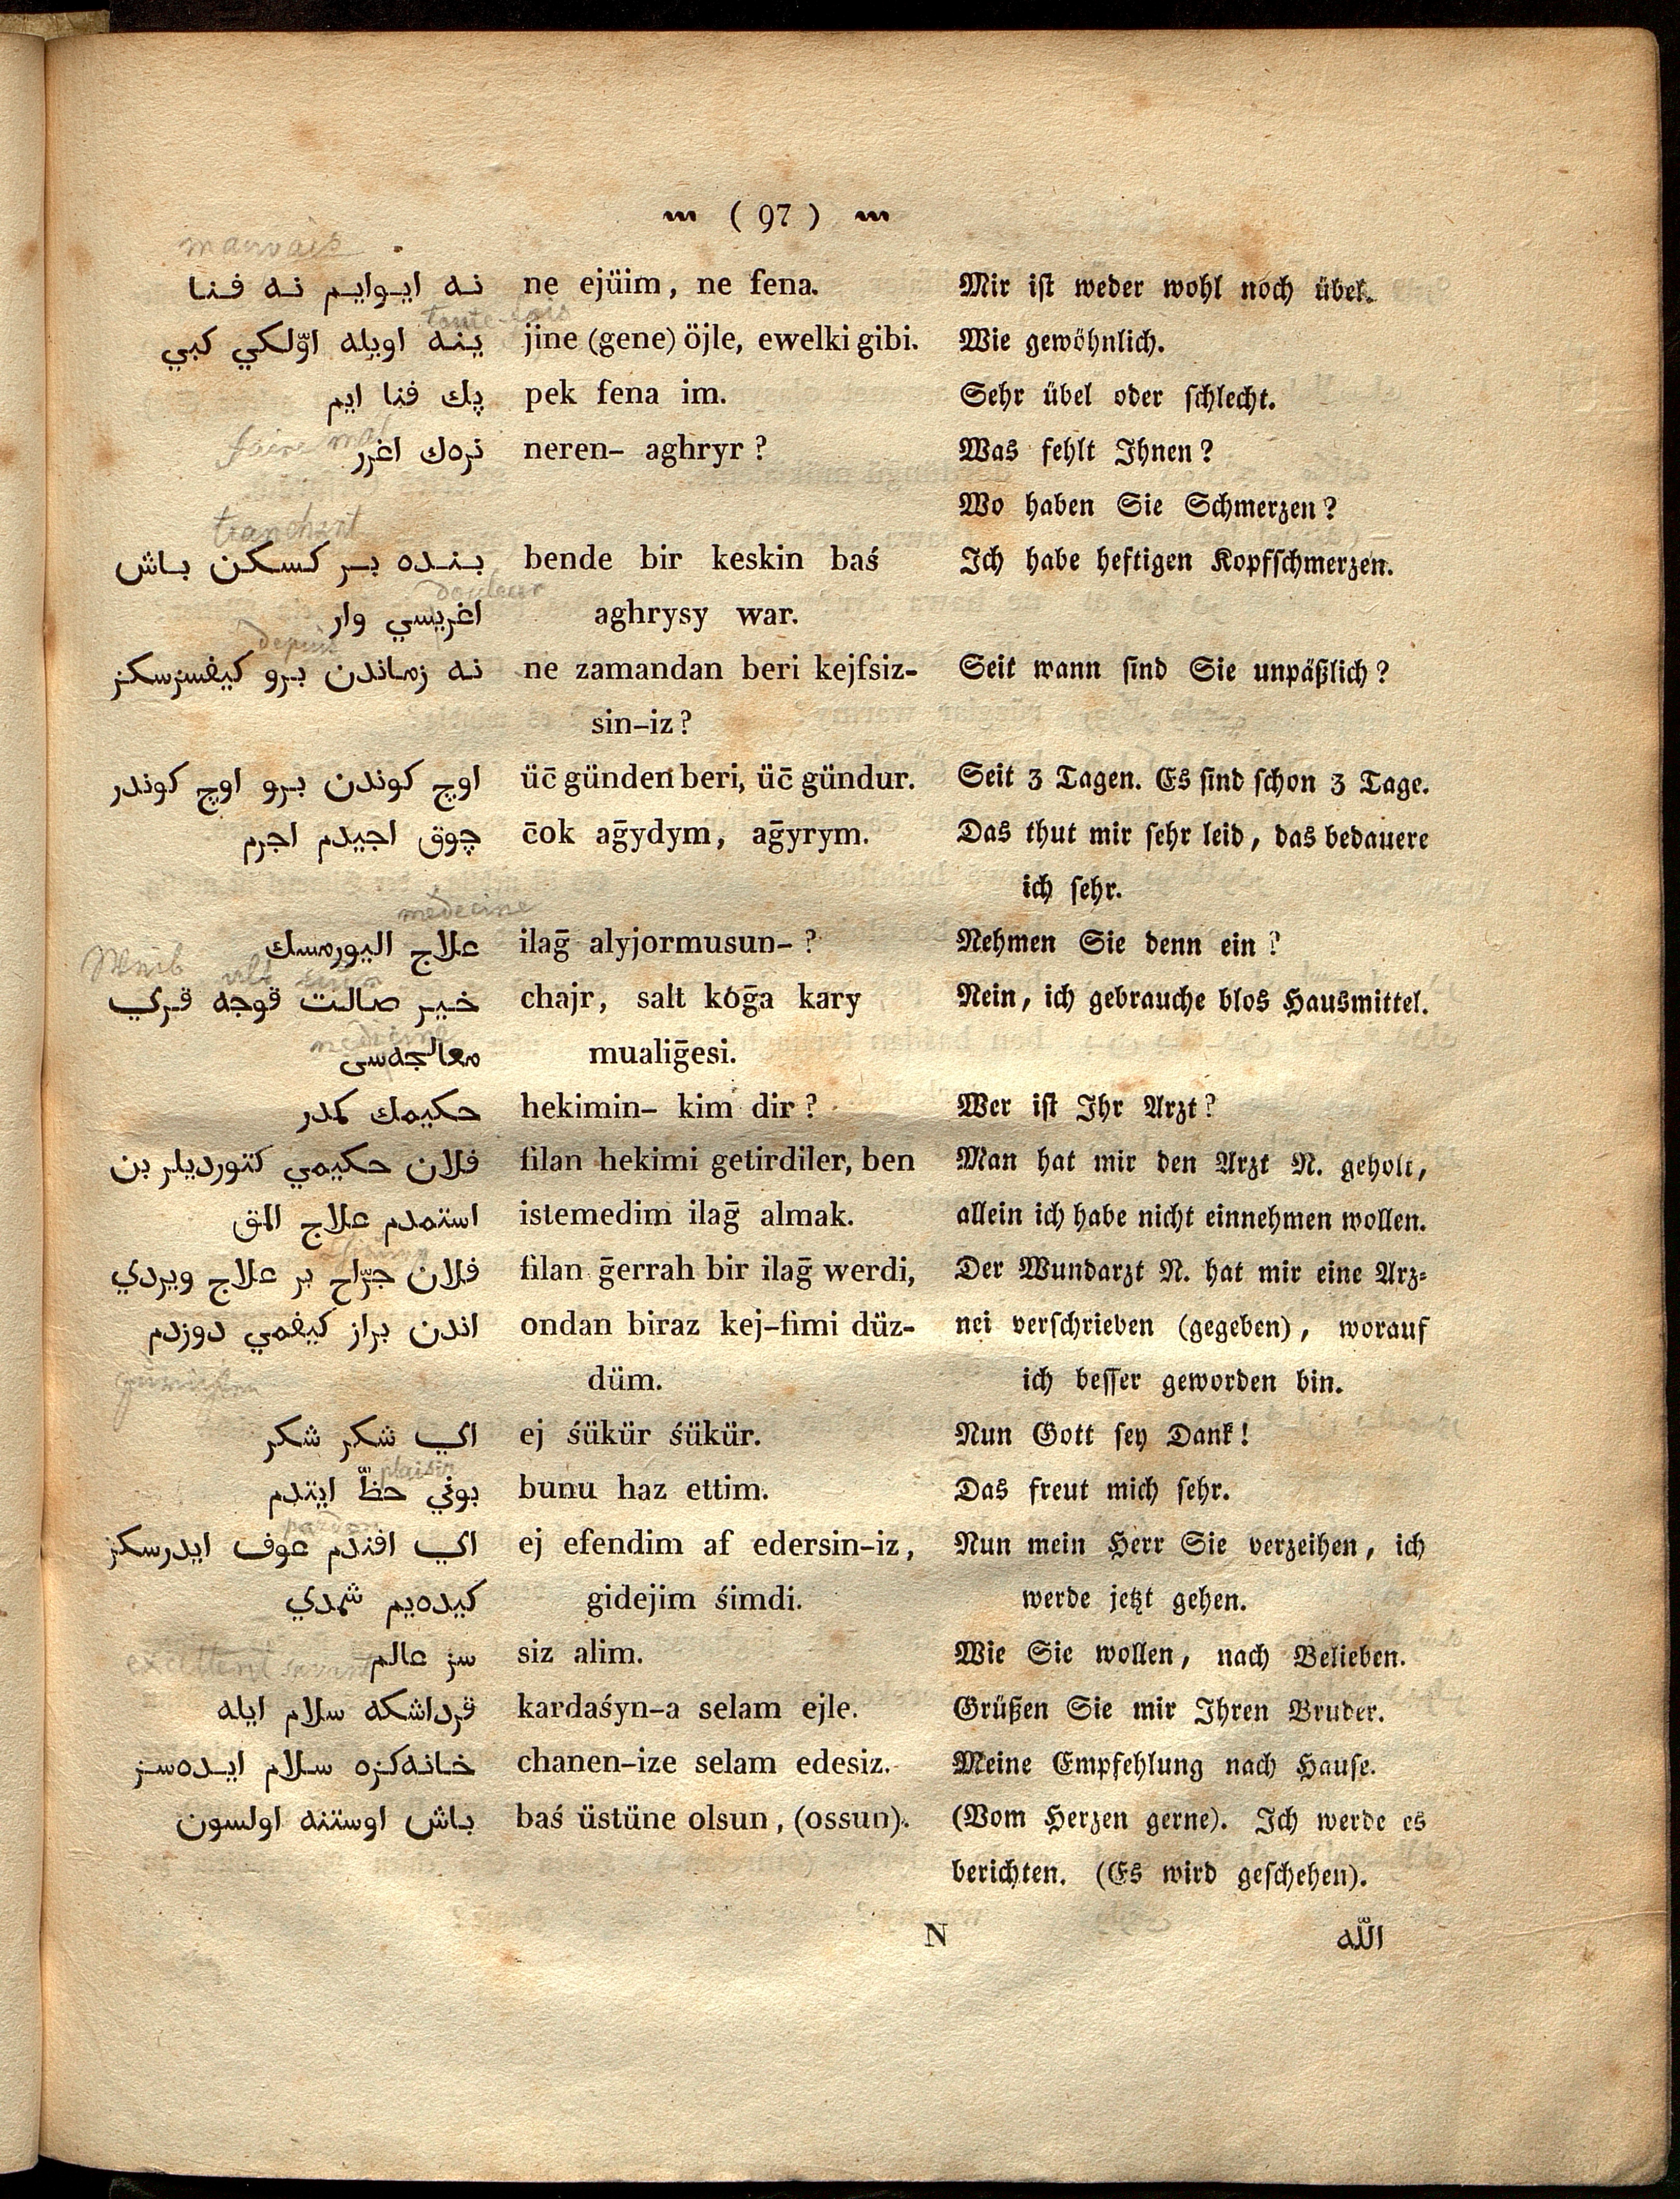 ( 97 )
mauvais
نه ايوايم نه فنا ne ejüim, ne fena. Mir ist weder wohl noch übel.
toute-fois
ينه اويله اوّلكي كبي jine (gene) öjle, ewelki gibi. Wie gewöhnlich.
پك فنا ايم pek fena im. Sehr übel oder schlecht.
faire mal
نره‌ك اغرر neren- aghryr? Was fehlt Ihnen?
Wo haben Sie Schmerzen?
tranchant
بنده بر كسكن باش bende bir keskin baś Ich habe heftigen Kopfschmerzen.
douleur
اغريسي وار aghrysy war.
depuis
نه زماندن برو كيفسزسكز ne zamandan beri kejfsiz- Seit wann sind Sie unpäßlich?
sin-iz?
اوچ كوندن برو اوچ كوندر üc̄ günden beri, üc̄ gündur. Seit 3 Tagen. Es sind schon 3 Tage.
چوق اجيدم اجرم c̄ok aḡydym, aḡyrym. Das thut mir sehr leid, das bedauere
ich sehr.
médecine
علاج اليورمسك ilaḡ alyjormusun- ? Nehmen Sie denn ein?
Weib
خير صالت قوجه قري chajr, salt kóḡa kary Nein, ich gebrauche blos Hausmittel.
medecine
معالجه‌سى mualiḡesi.
حكيمك كمدر hekimin- kim dir? Wer ist Ihr Arzt?
فلان حكيمي كتورديلر بن filan hekimi getirdiler, ben Man hat mir den Arzt N. geholt,
استمدم علاج المق istemedim ilaḡ almak. allein ich habe nicht einnehmen wollen.
فلان جرّاح بر علاج ويردي filan ḡerrah bir ilaḡ werdi, Der Wundarzt N. hat mir eine Arz-
اندن براز كيفمي دوزدم ondan biraz kej-fimi düz- nei verschrieben (gegeben), worauf
düm. ich besser geworden bin.
اي شكر شكر ej śükür śükür. Nun Gott sey Dank!
plaisir
بوني حظّ ايتدم bunu haz ettim. Das freut mich sehr.
pardon
اي افندم عوف ايدرسكز ej efendim af edersin-iz, Nun mein Herr Sie verzeihen, ich
كيده‌يم شمدي gidejim śimdi. werde jetzt gehen.
excellent savant
سز عالم siz alim. Wie Sie wollen, nach Belieben.
قرداشكه سلام ايله kardaśyn-a selam ejle. Grüßen Sie mir Ihren Bruder.
خانه‌كزه سلام ايده‌سز chanen-ize selam edesiz. Meine Empfehlung nach Hause.
باش اوستنه اولسون baś üstüne olsun, (ossun). (Vom Herzen gerne). Ich werde es
berichten. (Es wird geschehen).
N الله